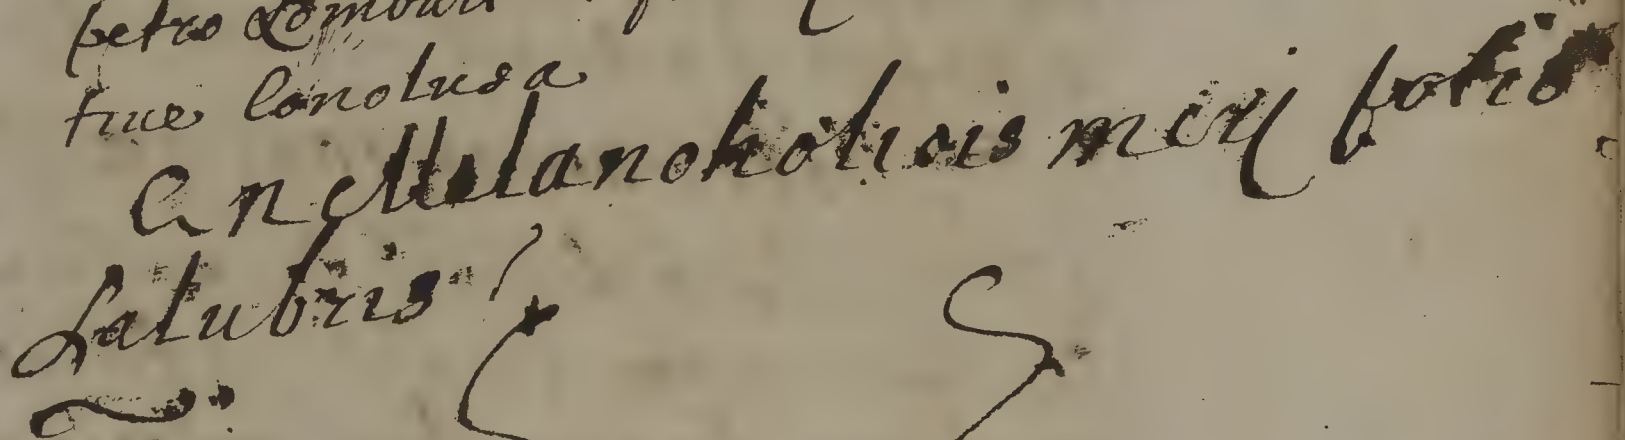 petro Lombart
fuit Conclusa
An Melancholicis meri potio
Salubris